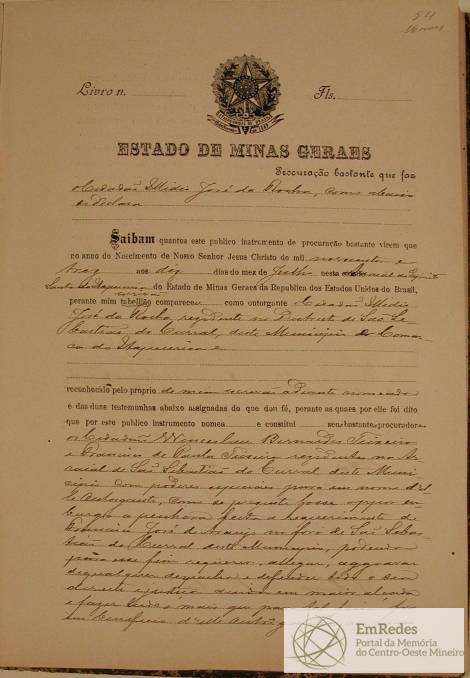 54
Livro n. Fls.
ESTADO DE MINAS GERAES
Procuração bastante que faz
o Cidadão José da Rocha, como abaixo
se declara
Saibam quantos este publico instrumento de procuração bastante virem que
no anno do Nascimento de Nosso Senhor Jesus Christo de mil novecentos e
treze aos dez dias do mez de Julho nesta
do Estado de Minas Geraes da Republica dos Estados Unidos do Brasil,
perante mim tabellião compareceu como outorgante o Cidadão
José da Rocha residente no Districto de São Se-
bastião do Curral, deste Municipio e Comar-
ca de Itapecerica e
reconhecido pelo proprio de mim escrivão adiante nomeado
e das duas testemunhas abaixo assignadas do que dou fé, perante as quaes por elle foi dito
que por este publico instrumento nomea e constitui seus bastantes procuradores
os Cidadãos Wenceslau Bernardes Teixeira
e de Paula Teixeira residentes no Ar-
raial de São Sebastião do Curral deste Muni-
cipio com poderes especiaes para em nome del-
le Outorgante, como se presente fosse oppor em-
bargo a penhora feita a requerimento de
Francisco José de Araujo no foro de São Sebas-
tião do Curral deste Municipio, podendo
para esse fim requerer, allegar, aggravar
de qualquer despacho e defender todo o seu
direito
e fazer tudo o mais que
EmRedes
Portal da Memória
do Centro-Oeste Mineiro